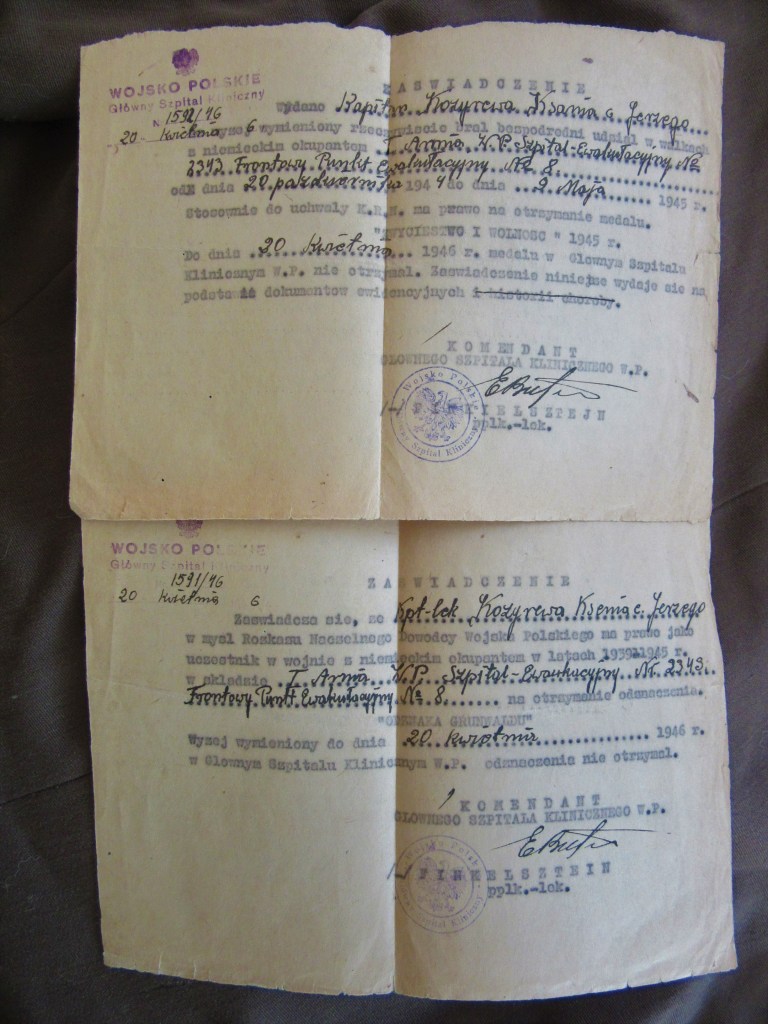 WOJSKO POLSKIE
Główny Szpital Kliniczny
N 1592/46
20 - kwietnia 6
ZASWIADCZENIE
Wydano Kapitan Kozyrewa Ksenia c. Jerzego
Wyzej wymieniony rzeczywiscie bral bezpodredni udzial w walkach
z niemieckim okupantem I Armia W.P. Szpital-Ewakułacyjny №
2343 Frontowy Punkt Ewakułacyjny № 8
od dnia 20 pazdziernika 1944 do dnia 9 Maja 1945 r.
Stosownie do uchwaly K.R.N. ma prawo na otrzymanie medalu.
"ZWYCIESTWO I WOLNOSC" 1945 r.
Do dnia 20 kwietnia 1946 r. medalu w Glownym Szpitalu
Klinicznym W.P. nie otrzymal. Zaswiadczenie niniejsze wydaje sie na
podstawie dokumentow ewidencyjnych i historii choroby.
KOMENDANT
GLOWNEGO SZPITALA KLINICZNEGO W.P.
/-/ FINKIELSZTEJN
pplk.-lek.
Wojsko Polskie
Główny Szpital Kliniczny
WOJSKO POLSKIE
Główny Szpital Kliniczny
1591/46
20 kwietnia 6
ZASWIADCZENIE
Zaswiadcza sie, ze Kpt-lek Kozyrewa Ksenia c. Jerzego
w mysl Rozkazu Naczelnego Dowodcy Wojska Polskiego ma prawo jako
uczestnik w wojnie z niemieckim okupantem w latach 1939-1945 r.
w skladzie I Armia W.P. Szpital-Ewakuacyjny Nr. 2343.
Frontowy Punkt Ewakułacyjny № 8 na otrzymanie odznaczenia.
"ODZNAKA GRUNWALDU"
Wyzej wymieniony do dnia 20 kwietnia 1946 r.
w Glownym Szpitalu Klinicznym W.P. odznaczenia nie otrzymal.
KOMENDANT
GLOWNEGO SZPITALA KLINICZNEGO W.P.
/-/ FINKELSZTEIN
pplk.-lek.